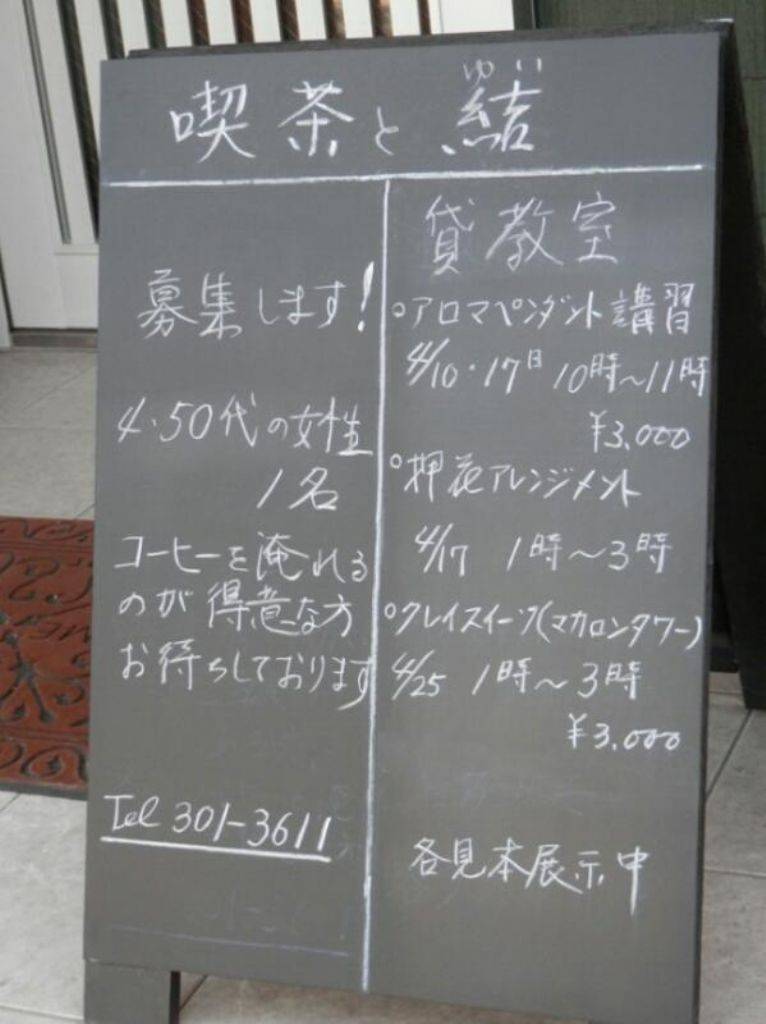 ゆい
喫茶と結
募集します!
4・50代の女性
1名
コーヒーを淹れる
のが得意な方
お待ちしております
Tel 301-3611
貸教室
○アロマペンダント講習
4/10・17日 10時~11時
¥3.000
○押花アレンジメント
4/17 1時~3時
○クレイスイーツ(マカロンタワー)
4/25 1時~3時
¥3.000
各見本展示中